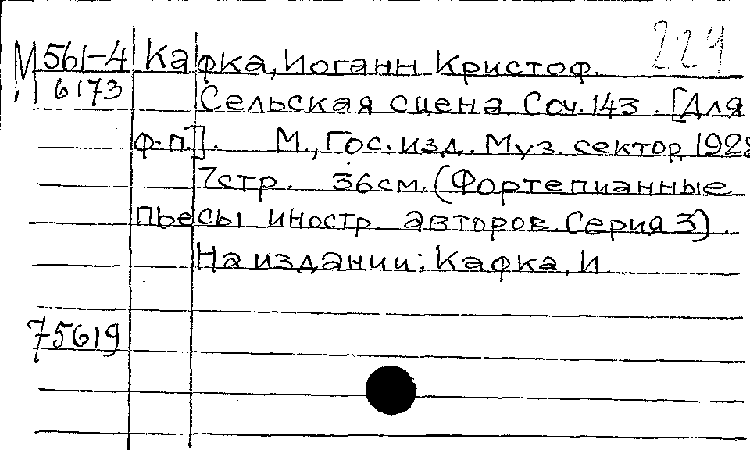 224
М 561-4 Кафка, Иоганн Кристоф.
6173 Сельская сцена Соч. 143. [Для
ф-п.]. М., Гос. изд. Муз. сектор, 1928.
7 стр. 36 см. (Фортепианные
пьесы иностр. авторов. Серия 3).
На издании: Кафка, И.
75619